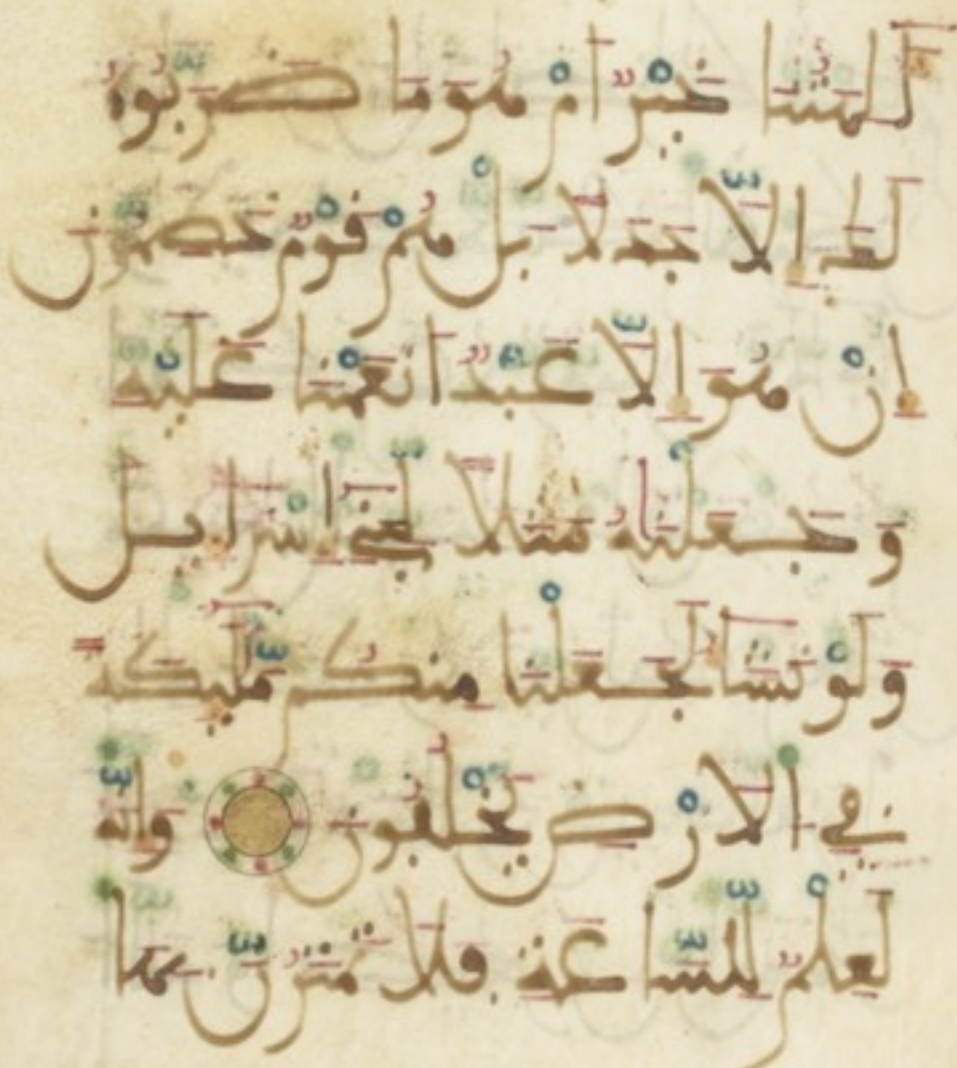 ءَأَٰلِهَتُنَا خَيْرٌ اَمْ هُوَ مَا ضَرَبُوهُ
لَكَ إِلَّا جَدَلَا بَلْ هُمْ قَوْمٌ خَصِمُونَ
إِنْ هُوَ إِلَّا عَبْدٌ اَنْعَمْنَا عَلَيْهِ
وَجَعَلْنَٰهُ مَثَلًا لِّبَنِي إِسْرَآءِيلَ
وَلَوْ نَشَآءُ لَجَعَلْنَا مِنكُم مَّلَٰٓئِكَةً
فِي الْاَرْضِ يَخْلُفُونَ وَإِنَّهُ
لَعِلْمٌ لِّلسَّاعَةِ فَلَا تَمْتَرُنَّ بِهَا